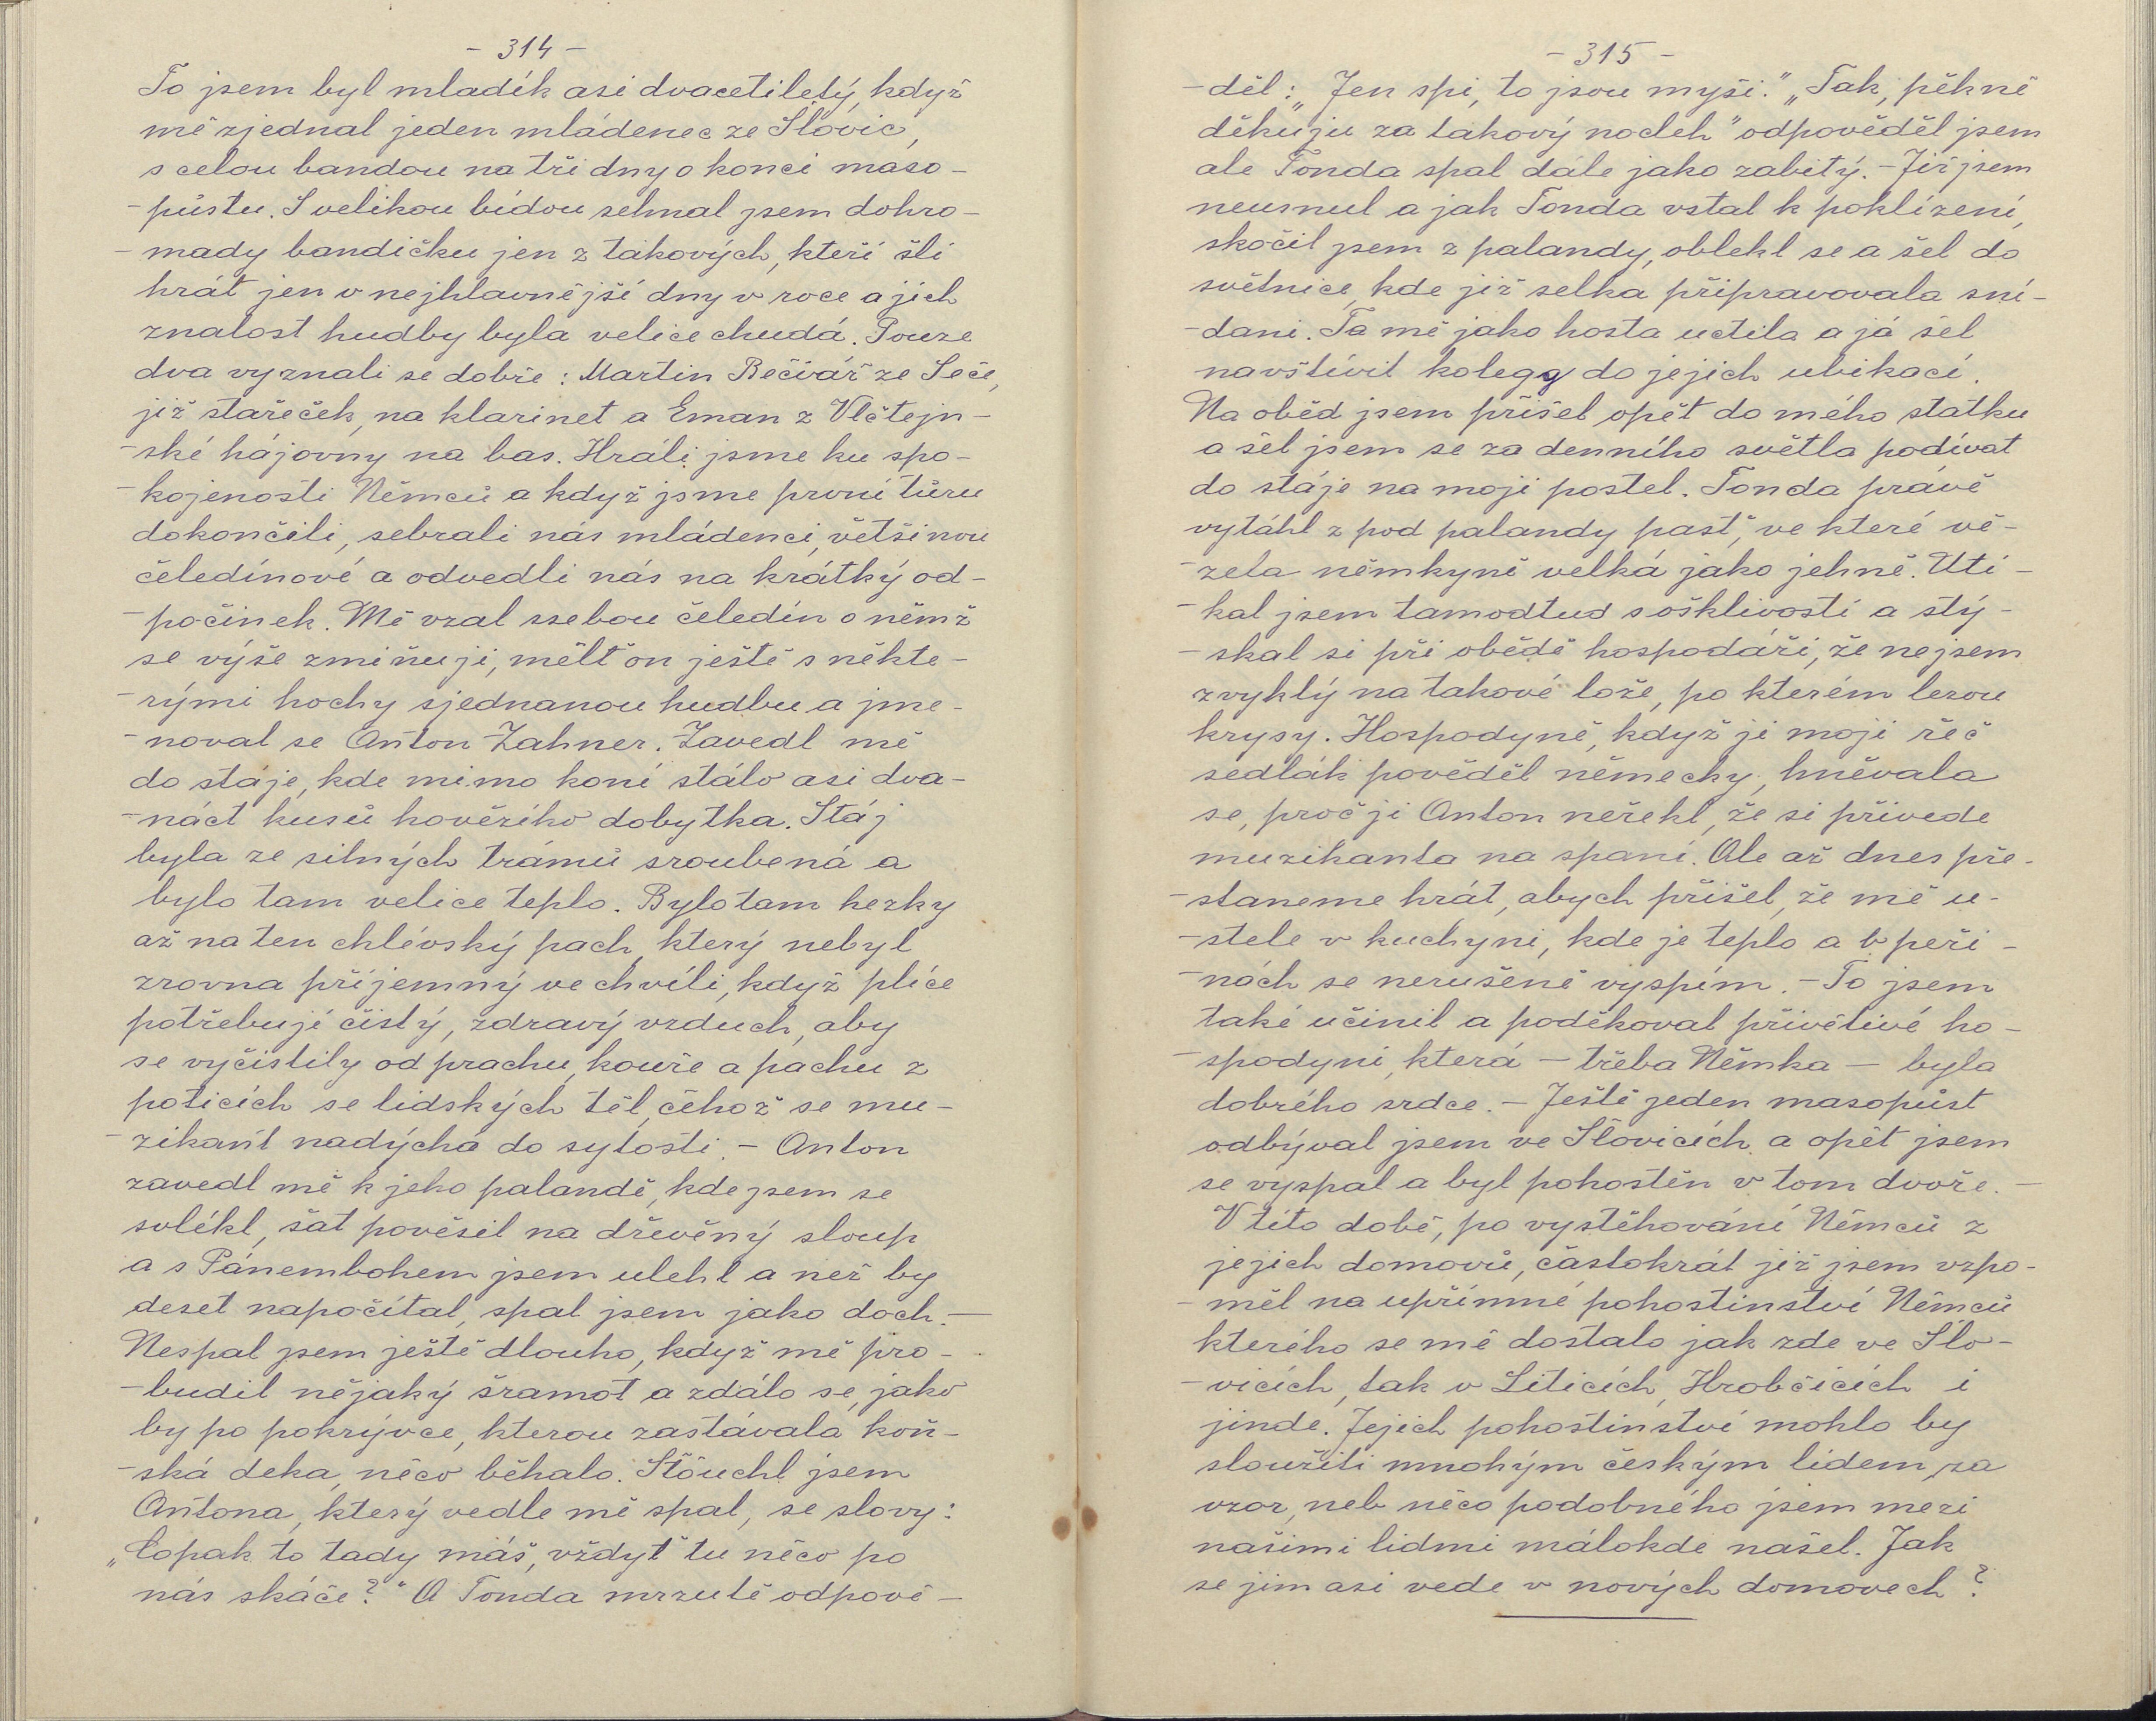 - 314 -
To jsem byl mladík asi dvacetiletý, když
mě zjednal jeden mládenec ze Šlovic,
s celou bandou na tři dny o konci maso-
-půstu. S velikou bídou sehnal jsem dohro-
-mady bandičku jen z takových, kteří šli
hrát jen v nejhlavnější dny v roce a jich
znalost hudby byla velice chudá. Pouze
dva vyznali se dobře: Martin Bečvář ze Seče,
již stařeček, na klarinet a Eman z Vlčtejn-
-ské hájovny na bas. Hráli jsme ku spo-
-kojenosti Němců a když jsme první túru
dokončili, sebrali nás mládenci, většinou
čeledínové a odvedli nás na krátký od-
-počinek. Mě vzal ssebou čeledín o němž
se výše zmiňuji, mělť on ještě s někte-
-rými hochy sjednanou hudbu a jme-
-noval se Anton Zahner. Zavedl mě
do stáje, kde mimo koní stálo asi dva-
-náct kusů hovězího dobytka. Stáj
byla ze silných trámů sroubená a
bylo tam velice teplo. Bylo tam hezky
až na ten chlévský pach, který nebyl
zrovna příjemný ve chvíli, když plíce
potřebují čistý, zdravý vzduch, aby
se vyčistily od prachu, kouře a pachu z
potících se lidských těl, čehož se mu-
-zikant nadýchá do sytosti. - Anton
zavedl mě k jeho palandě, kde jsem se
svlékl, šat pověsil na dřevěný sloup
a s Pánembohem jsem ulehl a než by
deset napočítal, spal jsem jako doch. -
Nespal jsem ještě dlouho, když mě pro-
-budil nějaký šramot a zdálo se, jako
by po pokrývce, kterou zastávala koň-
-ská deka, něco běhalo. Štouchl jsem
Antona, který vedle mě spal, se slovy:
„Copak to tady máš, vždyť tu něco po
nás skáče?“ A Tonda mrzutě odpově-
- 315 -
-děl: „Jen spi, to jsou myši.“ „Tak, pěkně
děkuju za takový nocleh“ odpověděl jsem
ale Tonda spal dále jako zabitý. - Již jsem
neusnul a jak Tonda vstal k poklízení,
skočil jsem z palandy, oblekl se a šel do
světnice, kde již selka připravovala sní-
-dani. Ta mě jako hosta uctila a já šel
navštívit kolegy do jejich ubikací.
Na oběd jsem přišel opět do mého statku
a šel jsem se za denního světla podívat
do stáje na moji postel. Tonda právě
vytáhl z pod palandy past, ve které vě-
-zela němkyně velká jako jehně. Utí-
-kal jsem tamodtud s ošklivostí a stý-
-skal si při obědě hospodáři, že nejsem
zvyklý na takové lože, po kterém lezou
krysy. Hospodyně, když jí moji řeč
sedlák pověděl německy, hněvala
se, proč jí Anton neřekl, že si přivede
muzikanta na spaní. Ale až dnes pře-
-staneme hrát, abych přišel, že mě u-
-stele v kuchyni, kde je teplo a v peři-
-nách se nerušeně vyspím. - To jsem
také učinil a poděkoval přívětivé ho-
-spodyni, která - třeba Němka - byla
dobrého srdce. - Ještě jeden masopůst
odbýval jsem ve Šlovicích a opět jsem
se vyspal a byl pohostěn v tom dvoře. -
V této době, po vystěhování Němců z
jejich domovů, častokrát již jsem vzpo-
-měl na upřímné pohostinství Němců
kterého se mě dostalo jak zde ve Šlo-
-vicích, tak v Liticích, Hrobčicích i
jinde. Jejich pohostinství mohlo by
sloužiti mnohým českým lidem za
vzor, neb něco podobného jsem mezi
našimi lidmi málokde našel. Jak
se jim asi vede v nových domovech?